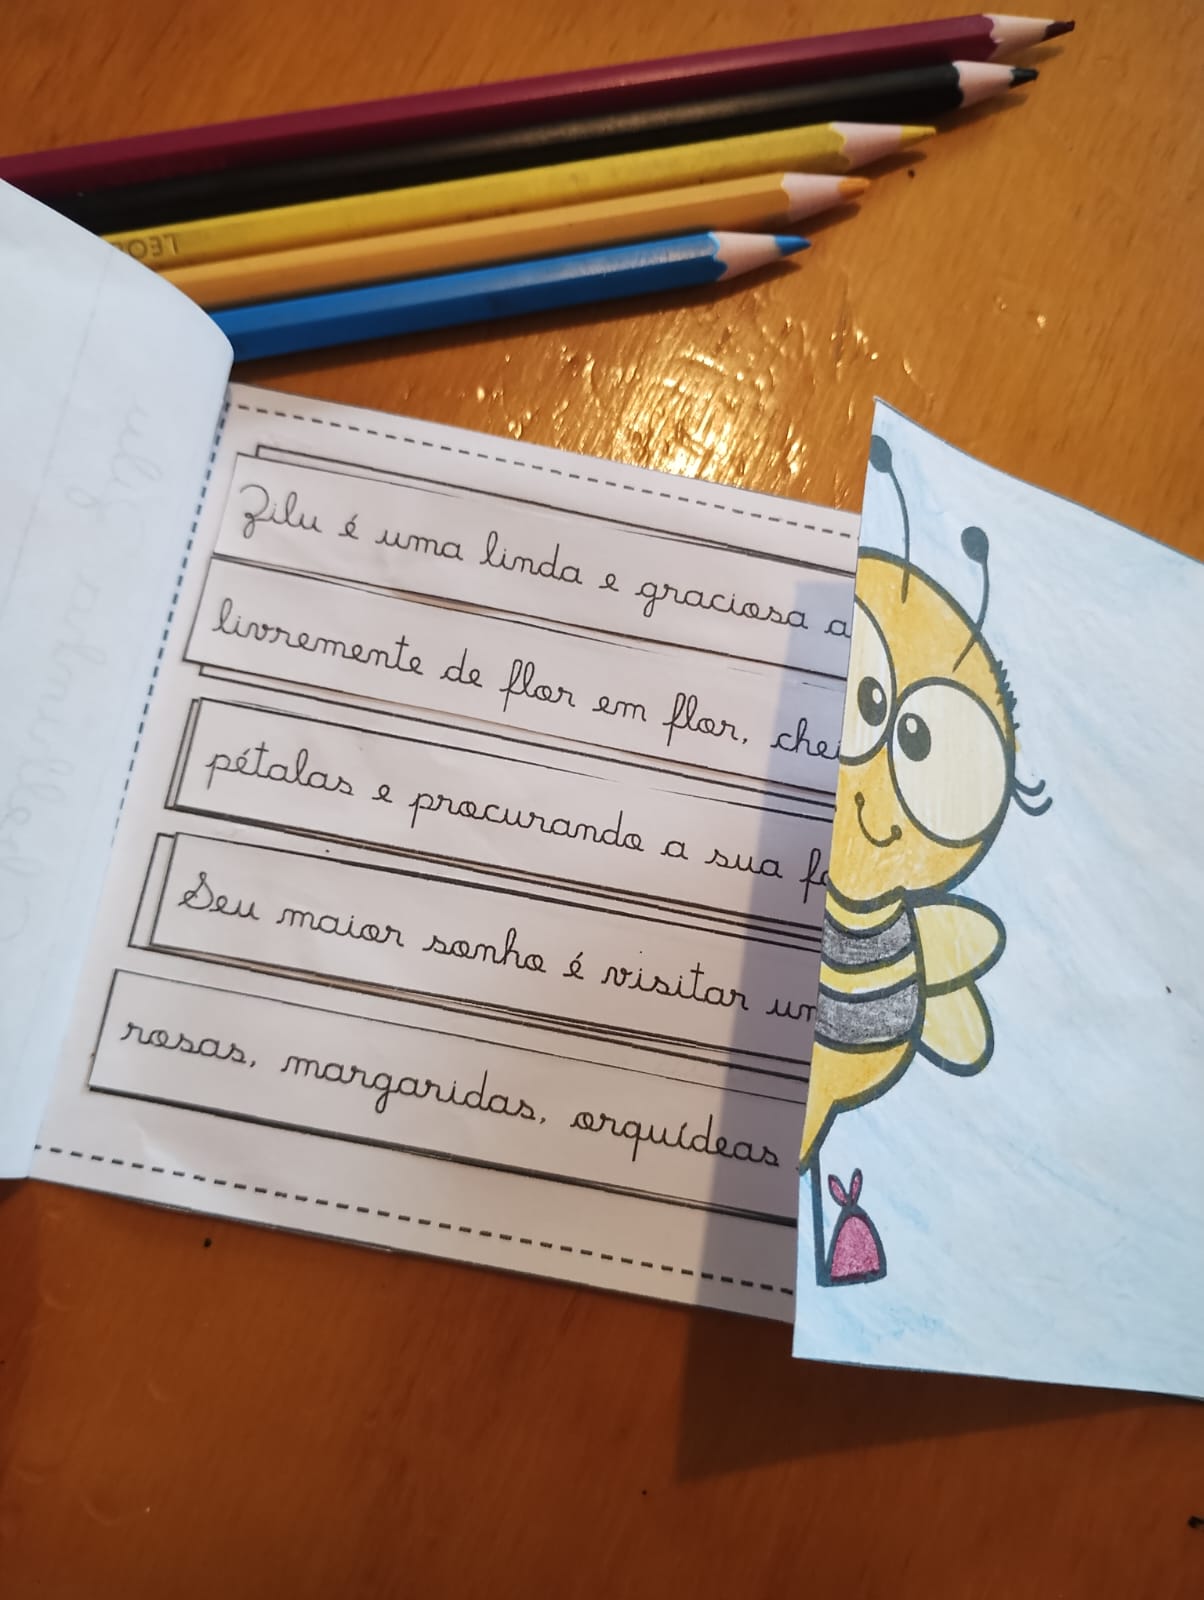 Zilu é uma linda e graciosa a
livremente de flor em flor, chei
pétalas e procurando a sua fo
Seu maior sonho é visitar um
rosas, margaridas, orquídeas